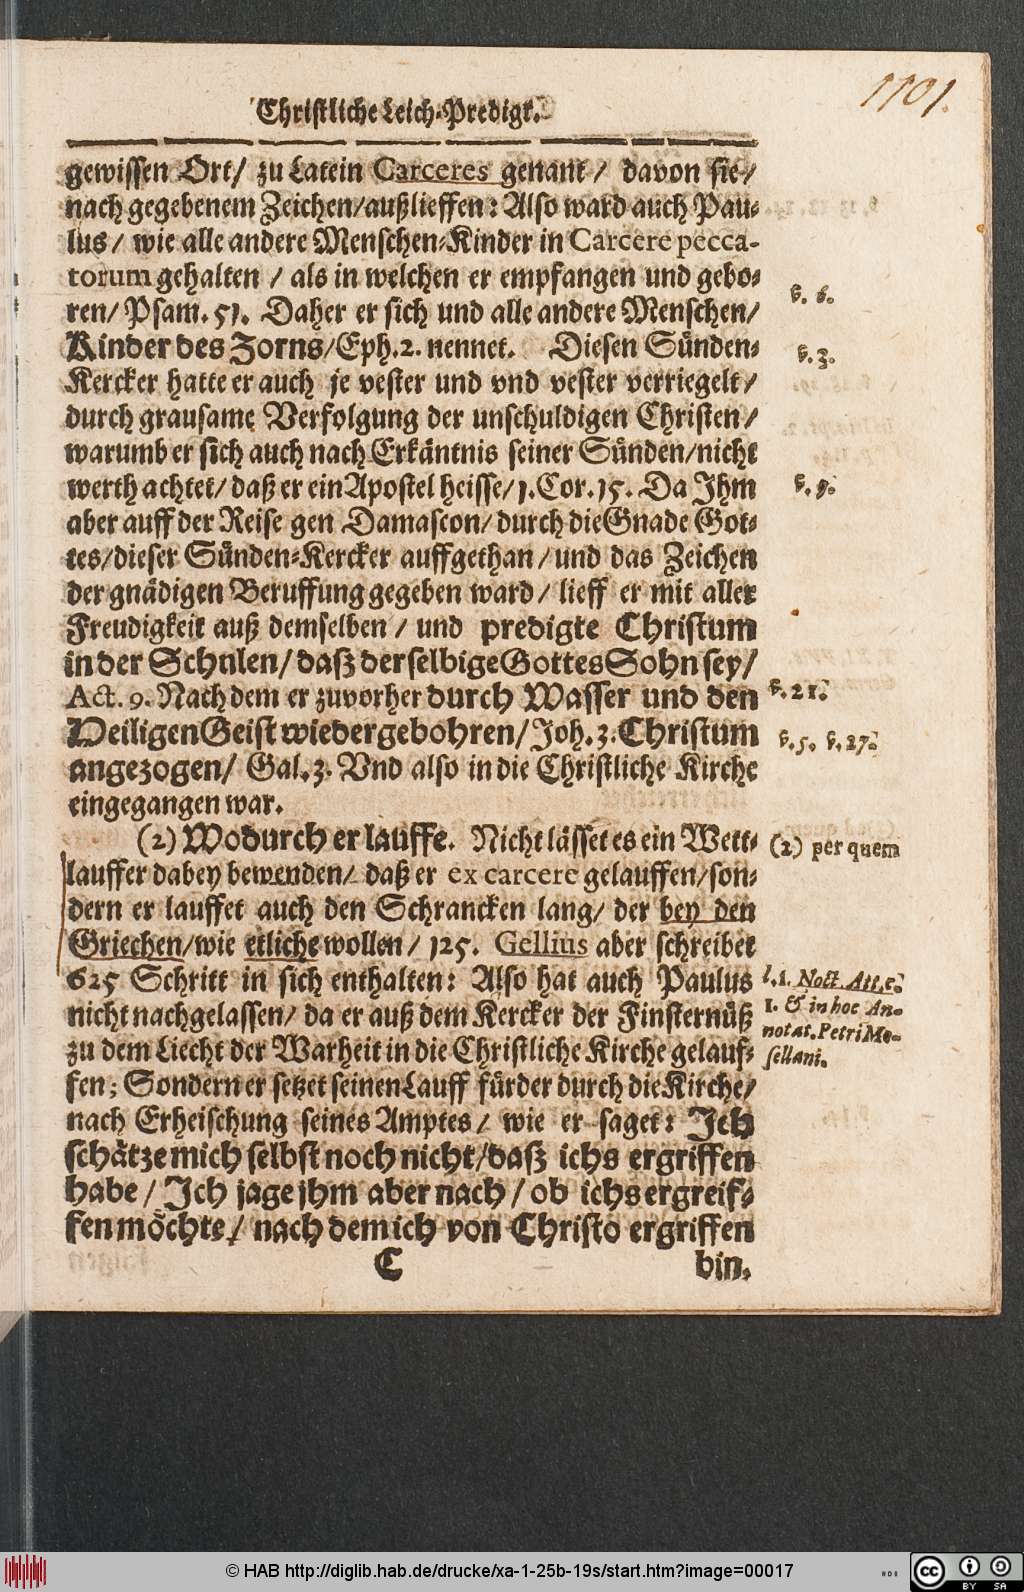 1101.
Christliche Leich-Predigt.
gewissen Ort/ zu Latein Carceres genant / davon sie/
nach gegebenem Zeichen/außlieffen: Also ward auch Pau-
lus / wie alle andere Menschen-Kinder in Carcere pecca-
torum gehalten / als in welchen er empfangen und gebo-
ren/ Psam. 51. Daher er sich und alle andere Menschen/
v. 6.
Kinder des Zorns/Eph. 2. nennet. Diesen Sünden-
v. 3.
Kercker hatte er auch je vester und vnd vester verriegelt/
durch grausame Verfolgung der unschuldigen Christen/
warumb er sich auch nach Erkäntnis seiner Sünden/nicht
werth achtet/ daß er ein Apostel heisse/1. Cor. 15. Da Jhm
v. 9.
aber auff der Reise gen Damascon/ durch die Gnade Got-
tes/dieser Sünden-Kercker auffgethan/und das Zeichen
der gnädigen Beruffung gegeben ward/ lieff er mit aller
Freudigkeit auß demselben/ und predigte Christum
in der Schulen/ daß derselbige Gottes Sohn sey/
Act. 9. Nach dem er zuvorher durch Wasser und den
v. 21.
Heiligen Geist wiedergebohren/ Joh. 3. Christum
v. 5. v. 27.
angezogen/ Gal. 3. Vnd also in die Christliche Kirche
eingegangen war.
(2) Wodurch er lauffe. Nicht lässet es ein Wett-
(2) per quem
lauffer dabey bewenden/ daß er ex carcere gelauffen/son-
dern er lauffet auch den Schrancken lang/ der bey den
Griechen/wie etliche wollen/ 125. Gellius aber schreibet
625 Schritt in sich enthalten: Also hat auch Paulus
l. 1. Noct. Att. c.
nicht nachgelassen/ da er auß dem Kercker der Finsternüß
1. & in hoc An-
zu dem Liecht der Warheit in die Christliche Kirche gelauf-
notat. Petri Mo-
sellani.
fen; Sondern er setzet seinen Lauff fürder durch die Kirche/
nach Erheischung seines Amptes/ wie er saget: Jch
schätze mich selbst noch nicht/daß ichs ergriffen
habe/ Jch jage jhm aber nach/ ob ichs ergreif-
fen möchte/ nach dem ich von Christo ergriffen
C bin.
© HAB http://diglib.hab.de/drucke/xa-1-25b-19s/start.htm?image=00017
cc BY SA